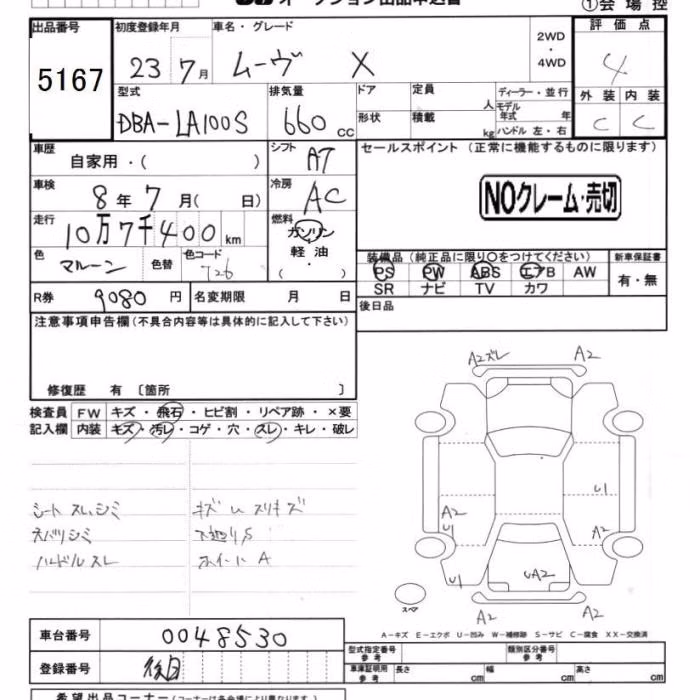 オークション出品申込書
①会場控
出品番号
5167
初度登録年月
23年7月
車名・グレード
ムーヴ X
2WD
・
4WD
評価点
4
型式
DBA-LA100S
排気量
660 cc
ドア
定員
人
形状
積載
kg
ディーラー・並行
モデル年式 年
ハンドル 左・右
外装 内装
C C
車歴
自家用・( )
シフト
AT
車検
8年7月( 日)
冷房
AC
走行
10万7千400km
燃料
ガソリン
・
軽油
( )
色
マルーン
色替
色コード
R券
9080円
名変期限 月 日
セールスポイント(正常に機能するものに限ります)
NOクレーム・売切
装備品(純正品に限り○をつけてください)
PS PW ABS エアB AW
SR ナビ TV カワ
新車保証書
有・無
後日品
注意事項申告欄(不具合内容等は具体的に記入して下さい)
修復歴 有〔箇所 〕
検査員記入欄
FW キズ・飛石・ヒビ割・リペア跡・×要
内装 キズ・汚レ・コゲ・穴・スレ・キレ・破レ
シート スレ、シミ
ネバリシミ
ハンドルスレ
キズ U スリキズ
下廻りS
ホイールA
A2ズレ A2
U1
A2
U1
A2
U1
UA2
A2
A2
スペア
A-キズ E-エクボ U-凹み W-補修跡 S-サビ C-腐食 XX-交換済
車台番号
0048530
登録番号
後日
型式指定番号
参考
類別区分番号
参考
車庫証明用
参考
長さ cm
幅 cm
高さ cm
希望出品コーナー